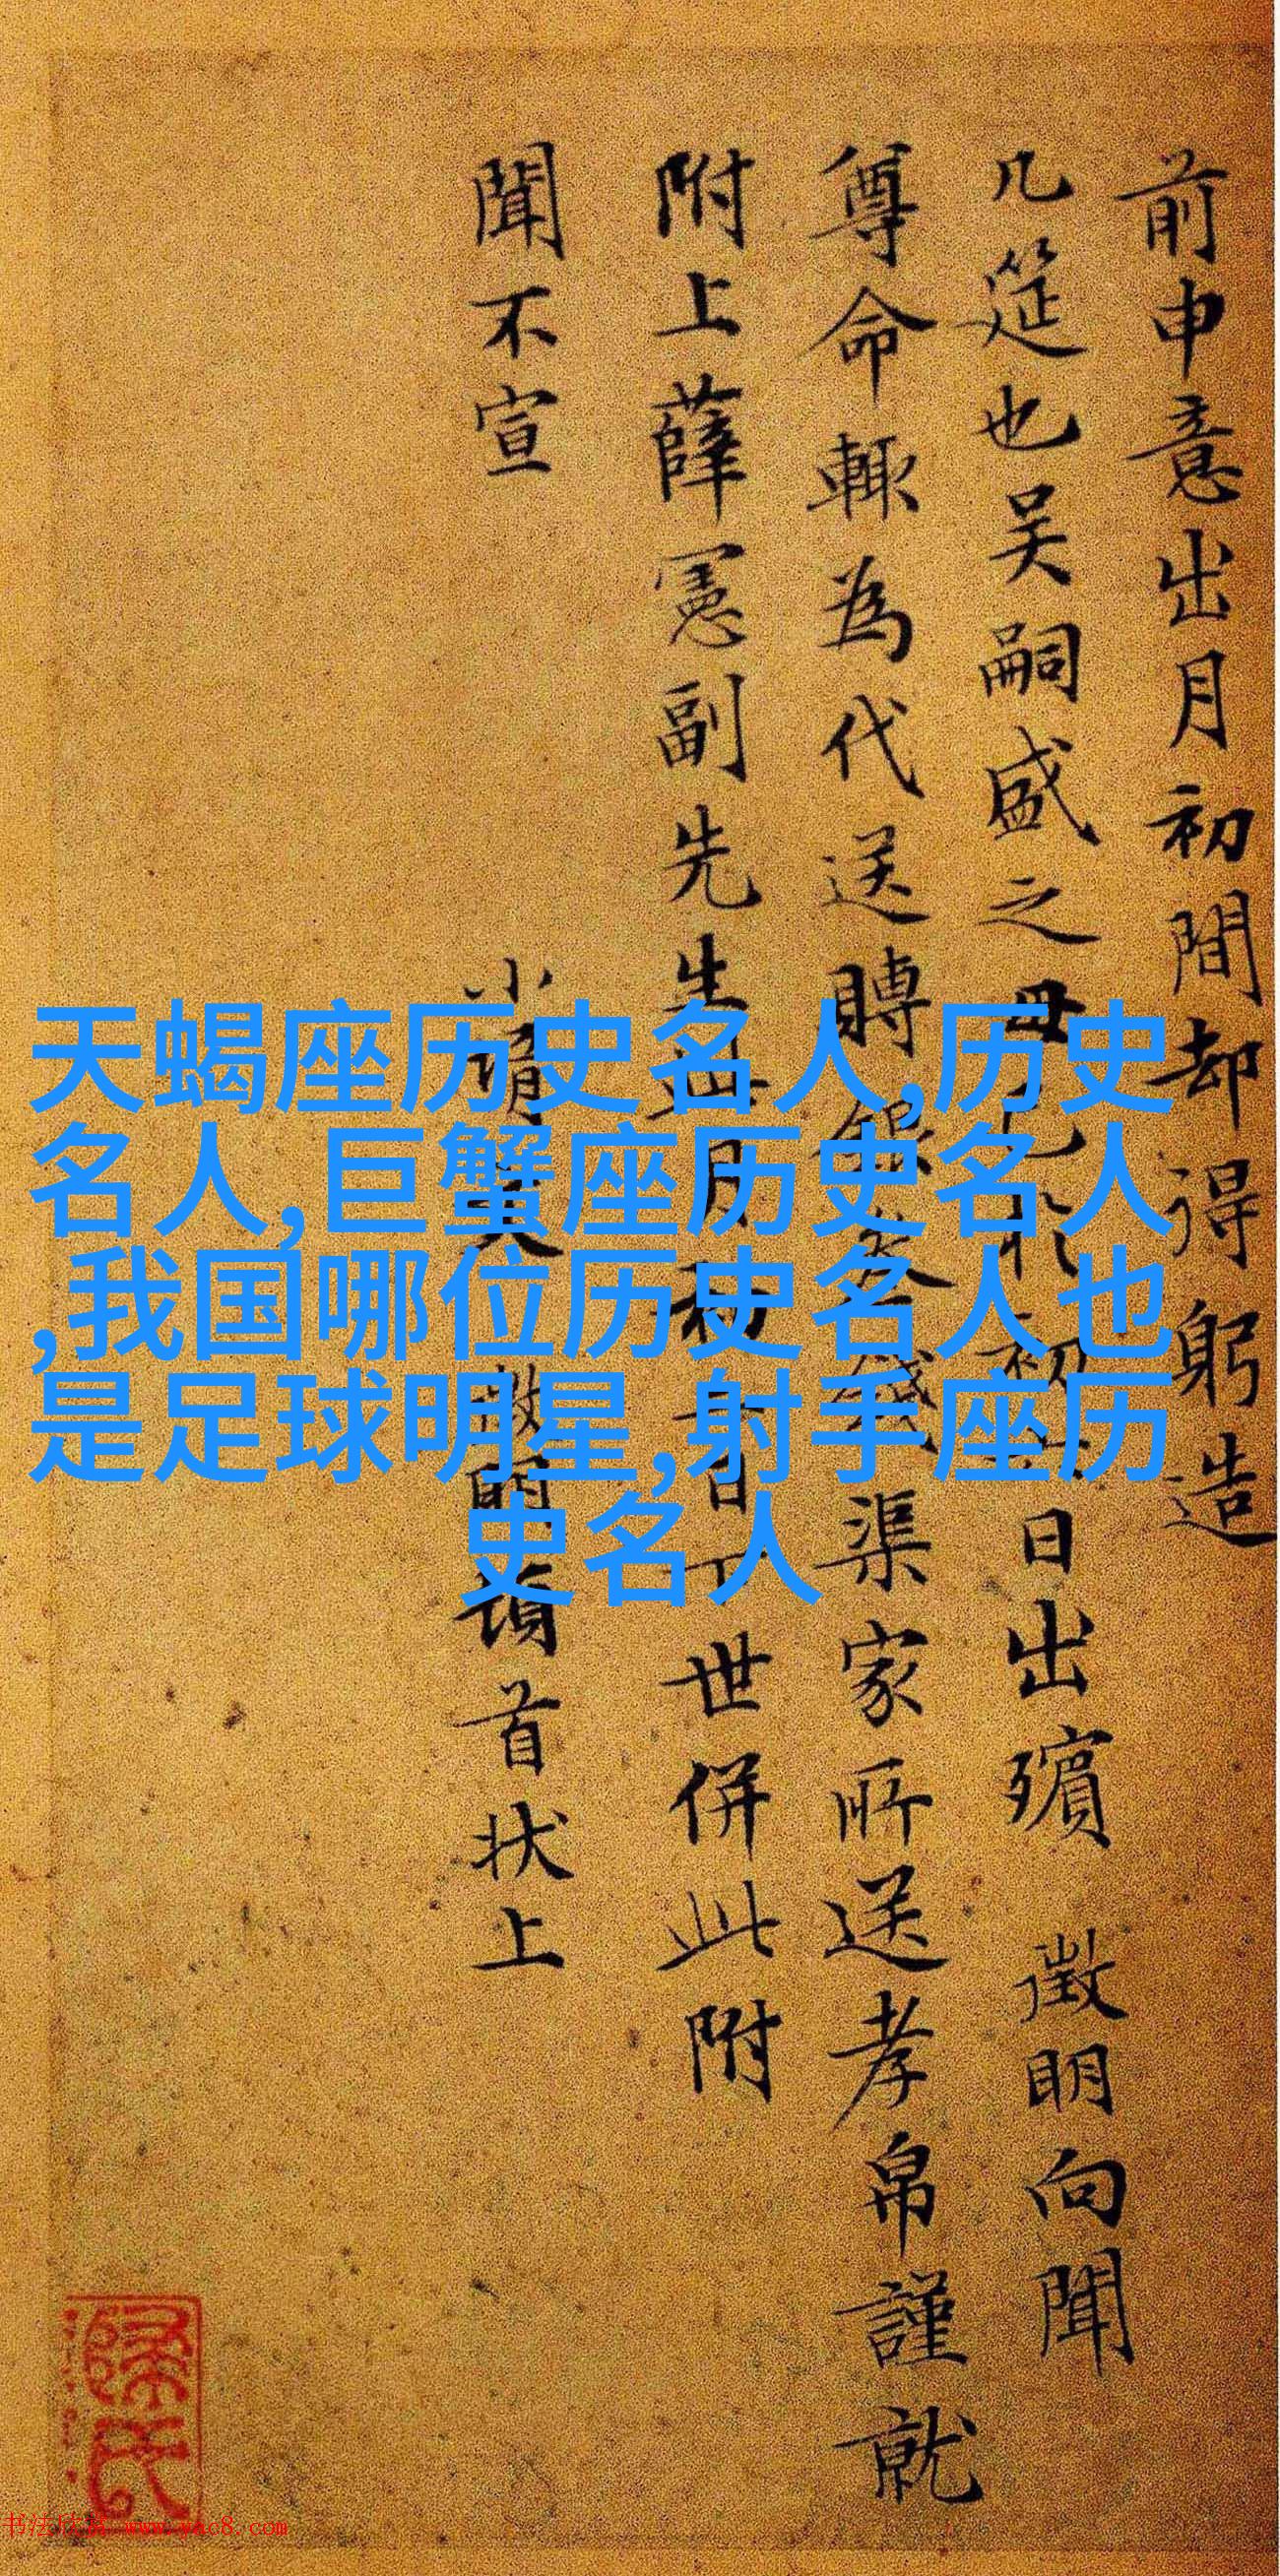 前申意出月初間却得躬造
几筵也吴嗣盛之母 初 日出殯 徵明向聞
尊命輒為代送賻 渠家所送孝帛謹就
附上薛憲副先生 月 世併此附
聞不宣
頓首状上
天蝎座历史名人,历史
名人,巨蟹座历史名人
,我国哪位历史名人也
是足球明星,射手座历
史名人
书法欣赏 www.yac8.com